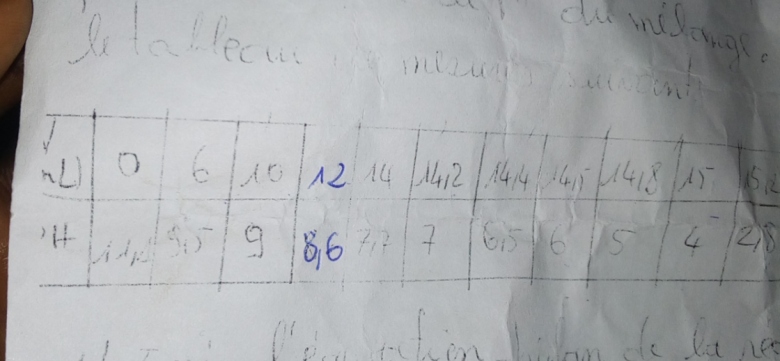 du mélange.
le tableau de mesures suivant
mL) 0 6 10 12 14 14,2 14,4 14,5 14,8 15
H 9,5 9 8,6 7,7 7 6,5 6 5 4 2,8
l'équation bilan de la